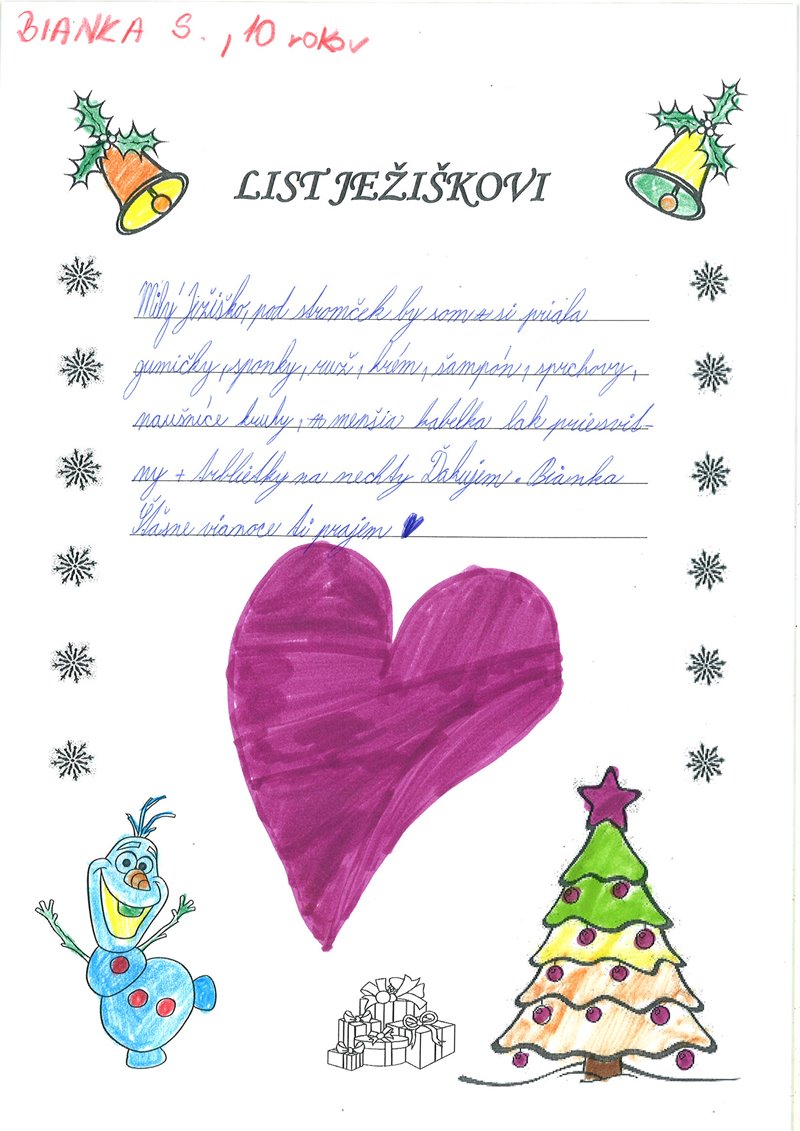 BIANKA S., 10 rokov
LIST JEŽIŠKOVI
Milý Ježiško, pod stromček by som si priala
gumičky, sponky, ruž, krém, šampón, sprchovy,
naušnice kruhy, menšia kabelka lak priesvit-
ny + trblietky na nechty Ďakujem. Bianka
Štasne vianoce ti prajem